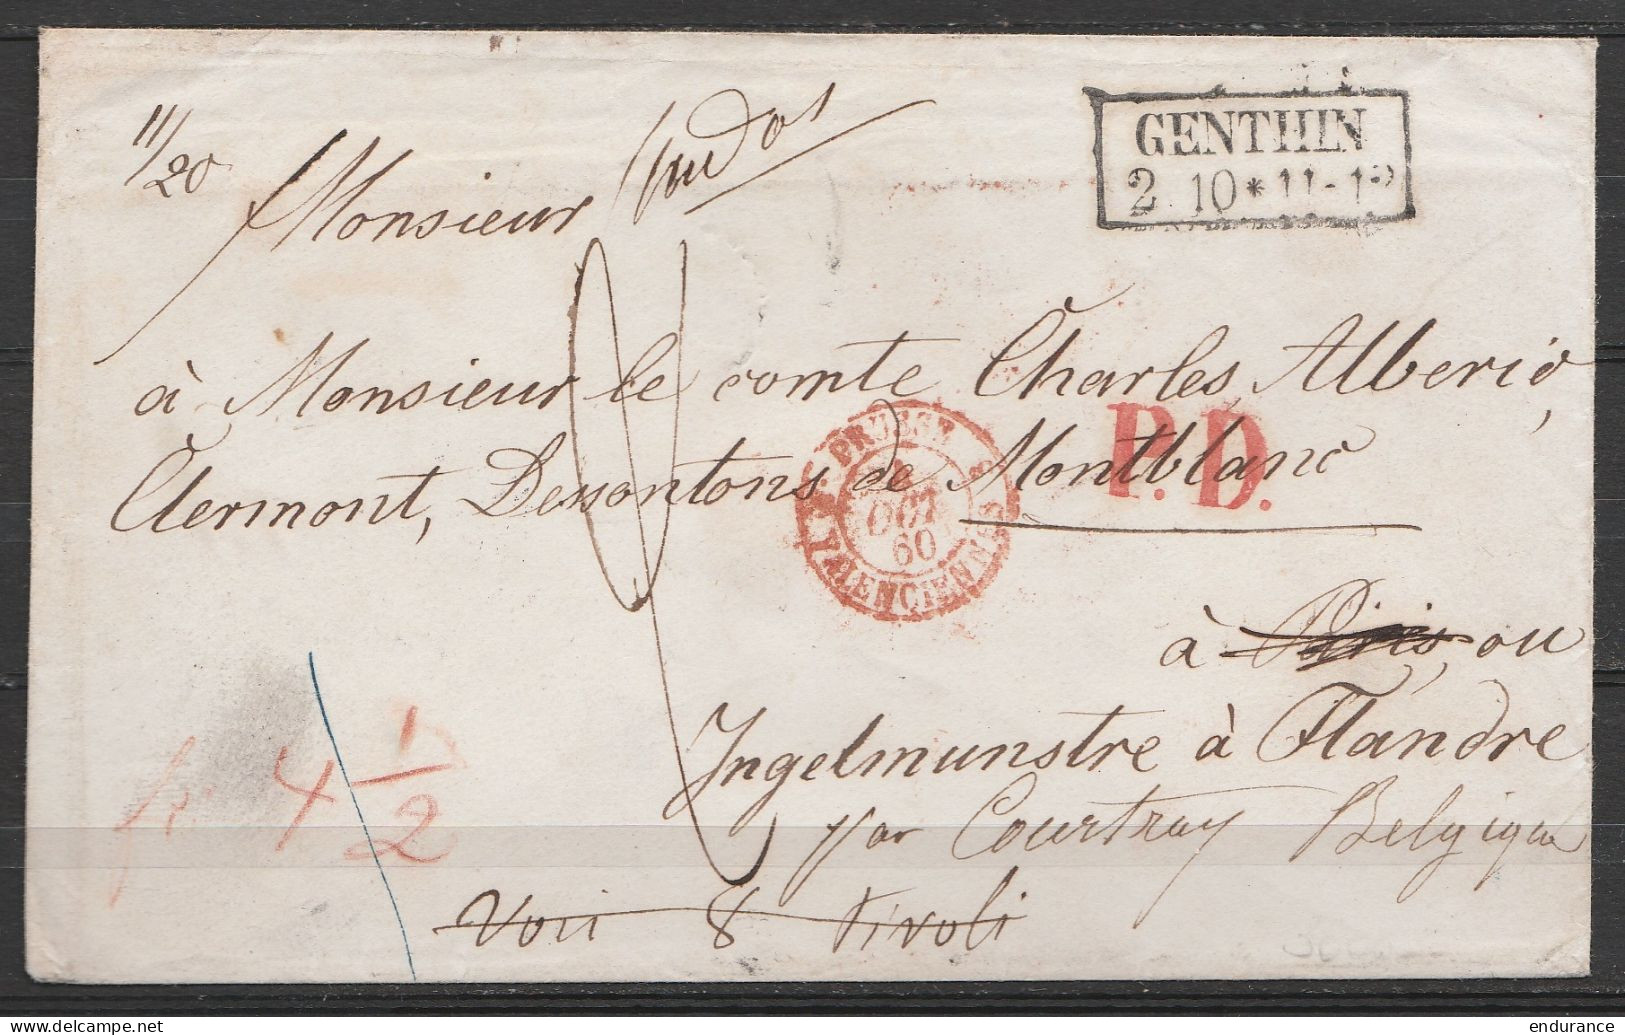 11/20
Monsieur
au dos
GENTHIN
2 10 * 11-12
à Monsieur le comte Charles Alberic,
Clermont, Dessontons de Montblanc
PRUSSE
OCT
60
VALENCIENNES
P.D.
à Paris, ou
Ingelmunstre à Flandre
par Courtray Belgique
Voir 8 Tivoli
fr. 4 1/2
delcampe.net
endurance